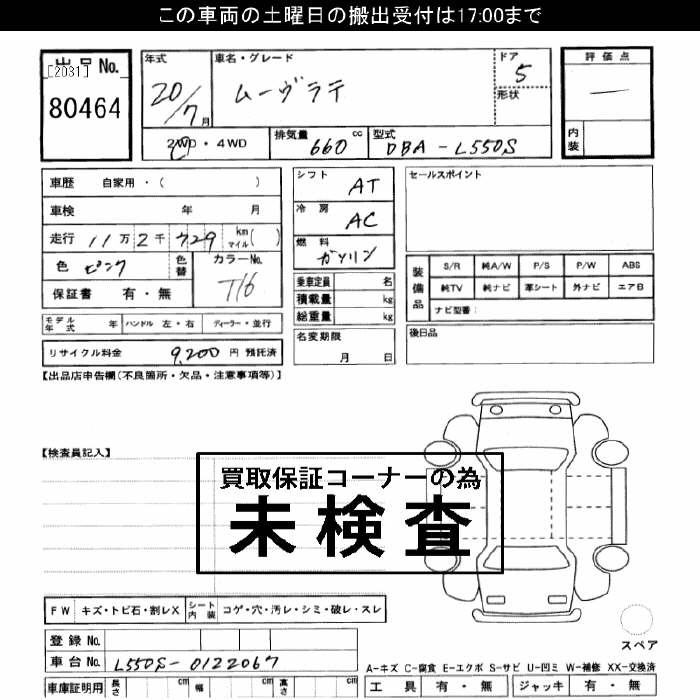 この車両の土曜日の搬出受付は17:00まで
出品No.
[2031]
80464
年式
20/7月
車名・グレード
ムーヴラテ
ドア
5
形状
評価点
内装
2WD・4WD
排気量 660 cc
型式 DBA-L550S
車歴 自家用・( )
車検 年 月
走行 11万2千729 km マイル( )
色 ピンク
色替
カラーNo.
T16
保証書 有・無
モデル年式 年
ハンドル 左・右
ディーラー・並行
リサイクル料金 9,200 円 預託済
シフト AT
冷房 AC
燃料 ガソリン
乗車定員 名
積載量 kg
総重量 kg
名変期限
月 日
セールスポイント
装備品
S/R 純A/W P/S P/W ABS
純TV 純ナビ 革シート 外ナビ エアB
ナビ型番:
後日品
【出品店申告欄(不良箇所・欠品・注意事項等)】
【検査員記入】
買取保証コーナーの為
未検査
FW キズ・トビ石・割レX
シート内装 コゲ・穴・汚レ・シミ・破レ・スレ
登録No.
車台No. L550S-0122067
車庫証明用 長さ cm 幅 cm 高さ cm
スペア
A-キズ C-腐食 E-エクボ S-サビ U-凹ミ W-補修 XX-交換済
工具 有・無 ジャッキ 有・無